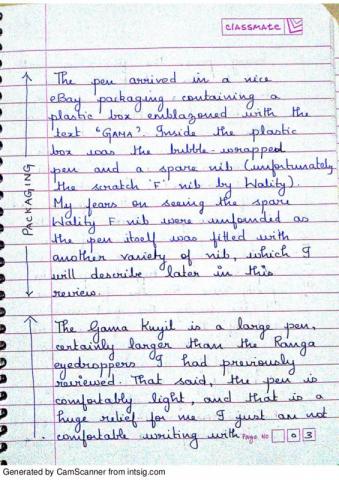 classmate
The pen arrived in a nice
eBay packaging containing a
plastic box emblazoned with the
text "GAMA". Inside the plastic
box was the bubble-wrapped
pen and a spare nib (unfortunately
the scratch 'F' nib by Wality).
My fears on seeing the spare
Wality F nib were unfounded as
the pen itself was fitted with
another variety of nib, which I
will describe later in this
review.
PACKAGING
The Gama Kuyil is a large pen,
certainly larger than the Ranga
eyedroppers I had previously
reviewed. That said, the pen is
comfortably light, and that is a
huge relief for me. I just am not
comfortable writing with
Page No 03
Generated by CamScanner from intsig.com